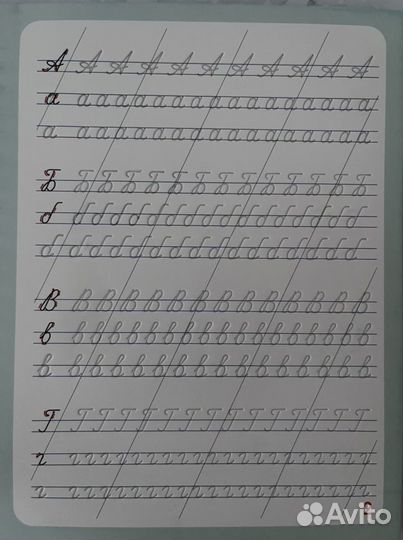 А А А А А А А А А А А
а а а а а а а а а а а а а а а а а
а а а а а а а а а а а а а а а а а
Б Б Б Б Б Б Б Б Б Б Б Б Б Б
б б б б б б б б б б б б б б б б
б б б б б б б б б б б б б б б б
В В В В В В В В В В В В В В
в в в в в в в в в в в в в в в в в
в в в в в в в в в в в в в в в в в
Г Г Г Г Г Г Г Г Г Г Г Г Г Г Г
г г г г г г г г г г г г г г г г г г г г
г г г г г г г г г г г г г г г г г г г г
Avito